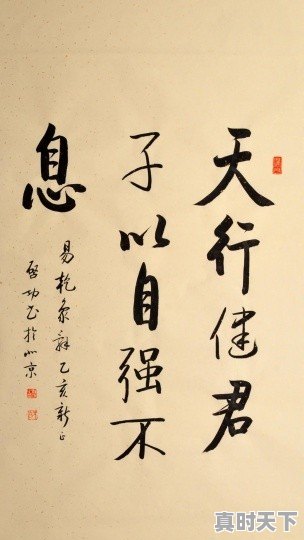 天行健君
子以自强不
息
易乾象辞乙亥新正
启功书于北京
真时天下